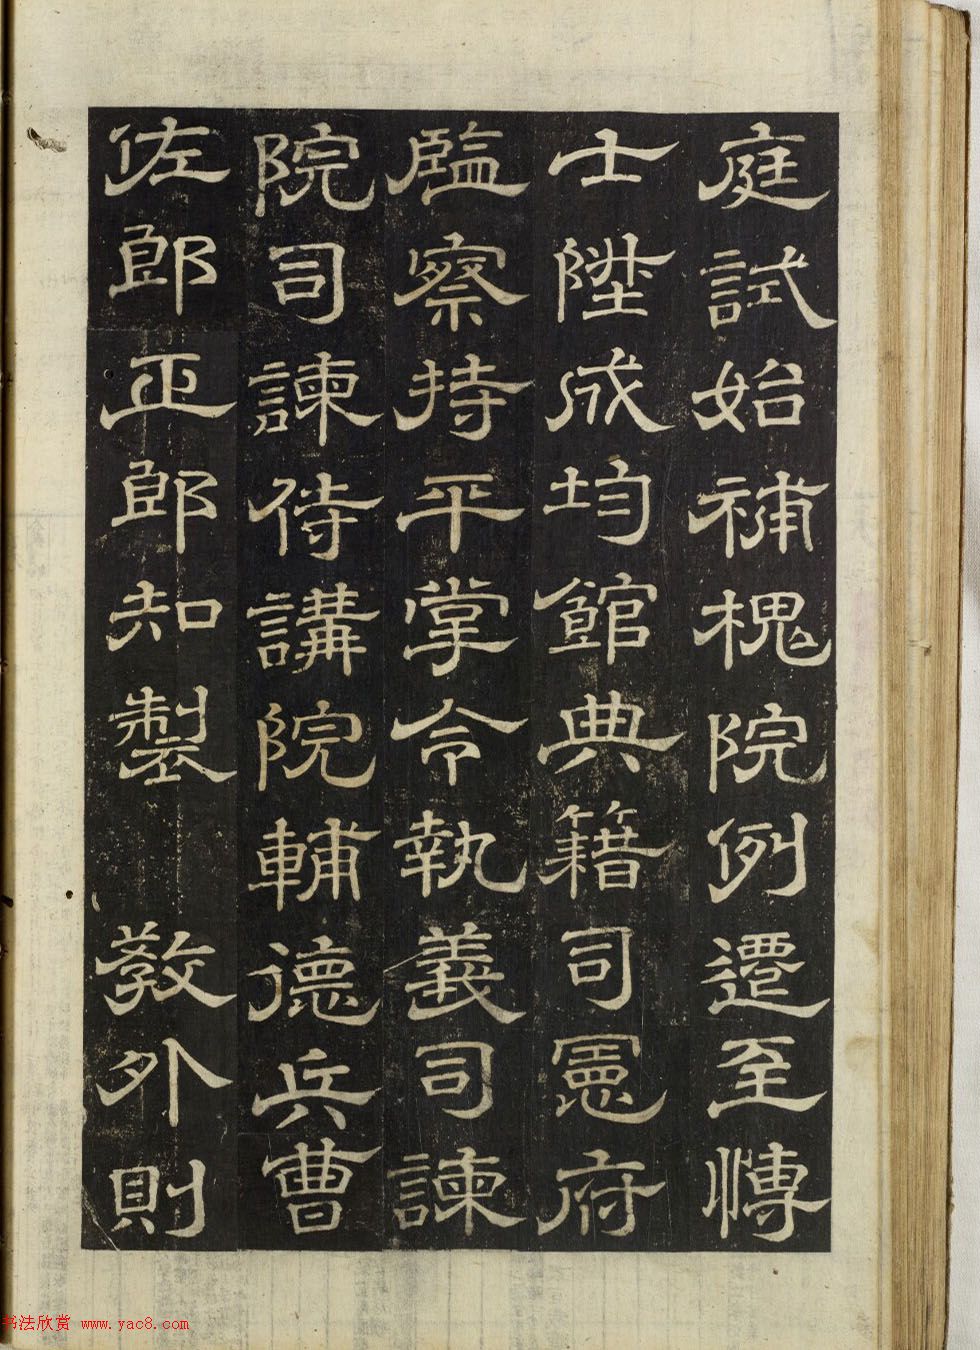 庭試始補槐院例遷至博
士陞成均館典籍司憲府
監察持平掌令執義司諫
院司諫侍講院輔德兵曹
佐郎正郎知製 敎外則
书法欣赏 www.yac8.com